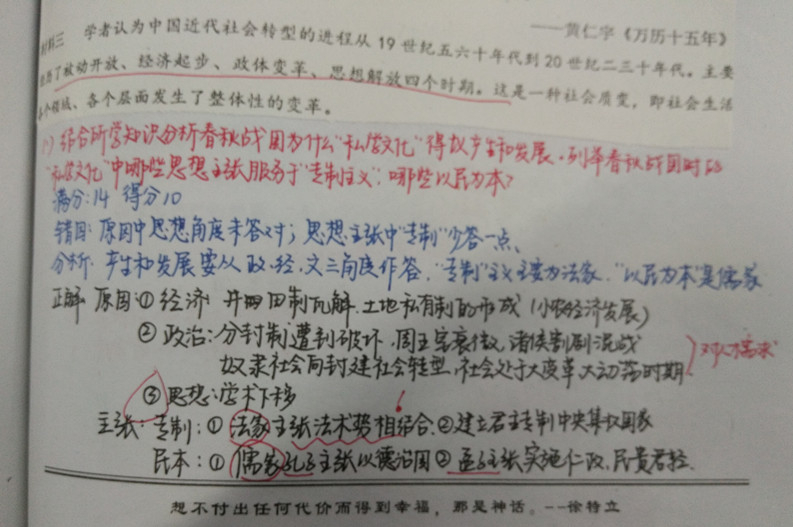 ——黄仁宇《万历十五年》
材料三 学者认为中国近代社会转型的进程从19世纪五六十年代到20世纪二三十年代。主要
经历了被动开放、经济起步、政体变革、思想解放四个时期。这是一种社会质变，即社会生活
各个领域、各个层面发生了整体性的变革。
(1)结合所学知识分析春秋战国为什么"私学文化"得以产生和发展。列举春秋战国时的
"私学文化"中哪些思想主张服务于"专制主义"；哪些以民为本？
满分：14 得分10
错因：原因中思想角度未答对；思想主张中"专制"少答一点、
分析：产生和发展要从政、经、文三角度作答，"专制"主义主要为法家，"以民为本"是儒家
正解 原因：①经济：井田制瓦解，土地私有制的形成（小农经济发展）
②政治：分封制遭到破坏，周王室衰微，诸侯割据混战
奴隶社会向封建社会转型，社会处于大变革、大动荡时期
对人才需求
③思想：学术下移
主张：专制：①法家主张法术势相结合②建立君主专制中央集权国家
民本：①儒家孔子主张以德治国②孟子主张实施仁政，民贵君轻.
想不付出任何代价而得到幸福，那是神话。--徐特立